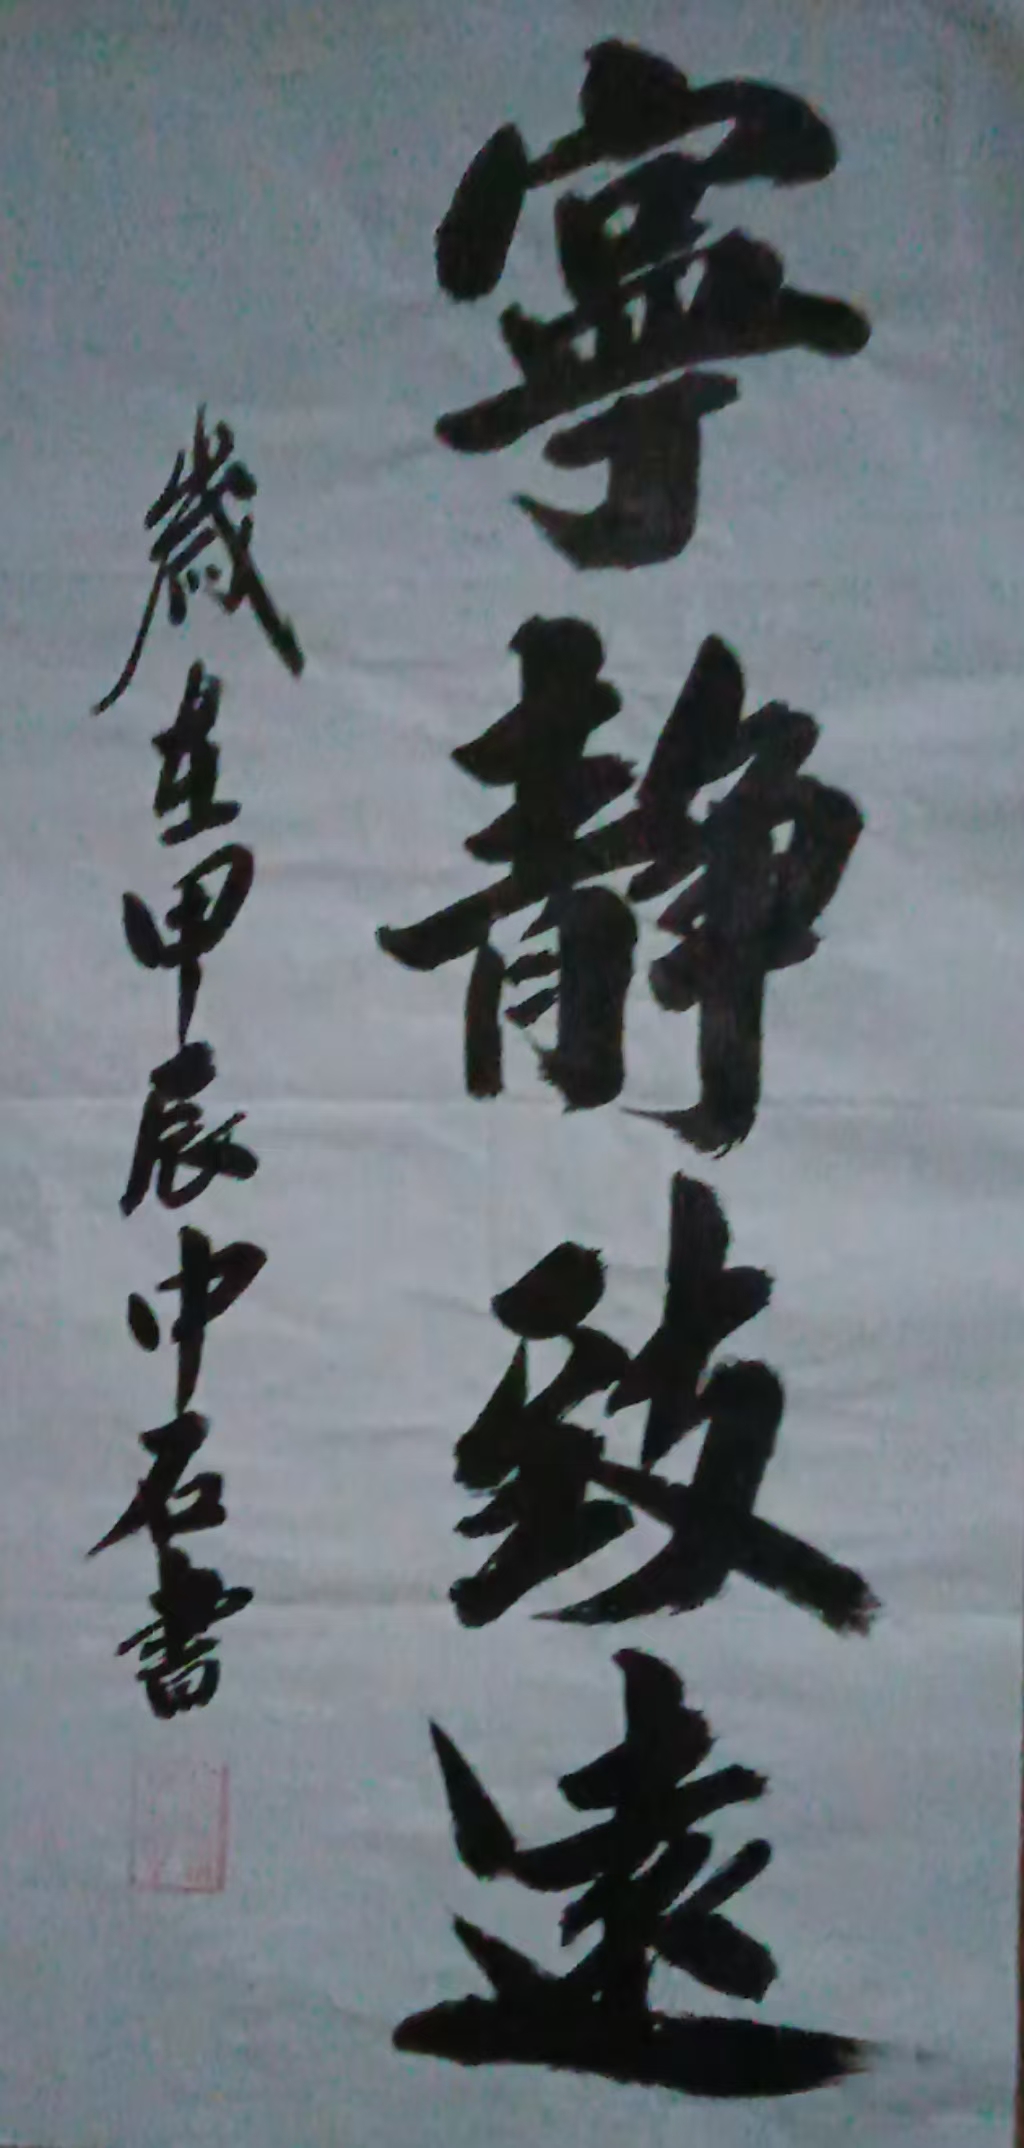 寧静致遠
歲在甲辰中石書